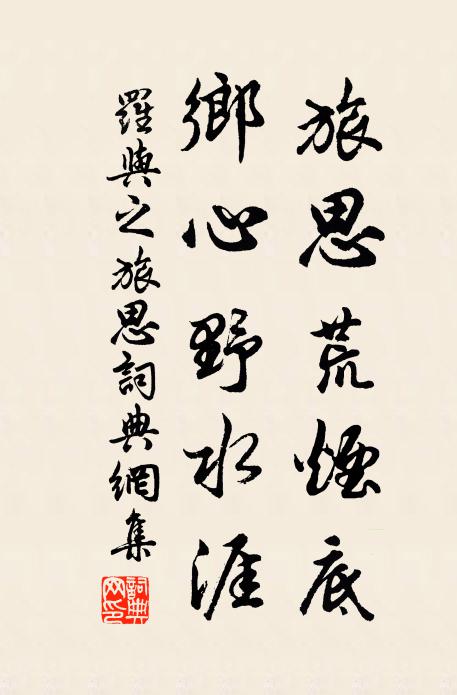 旅思荒煙底
鄉心野水涯
羅與之旅思詞典網集
詞典網印